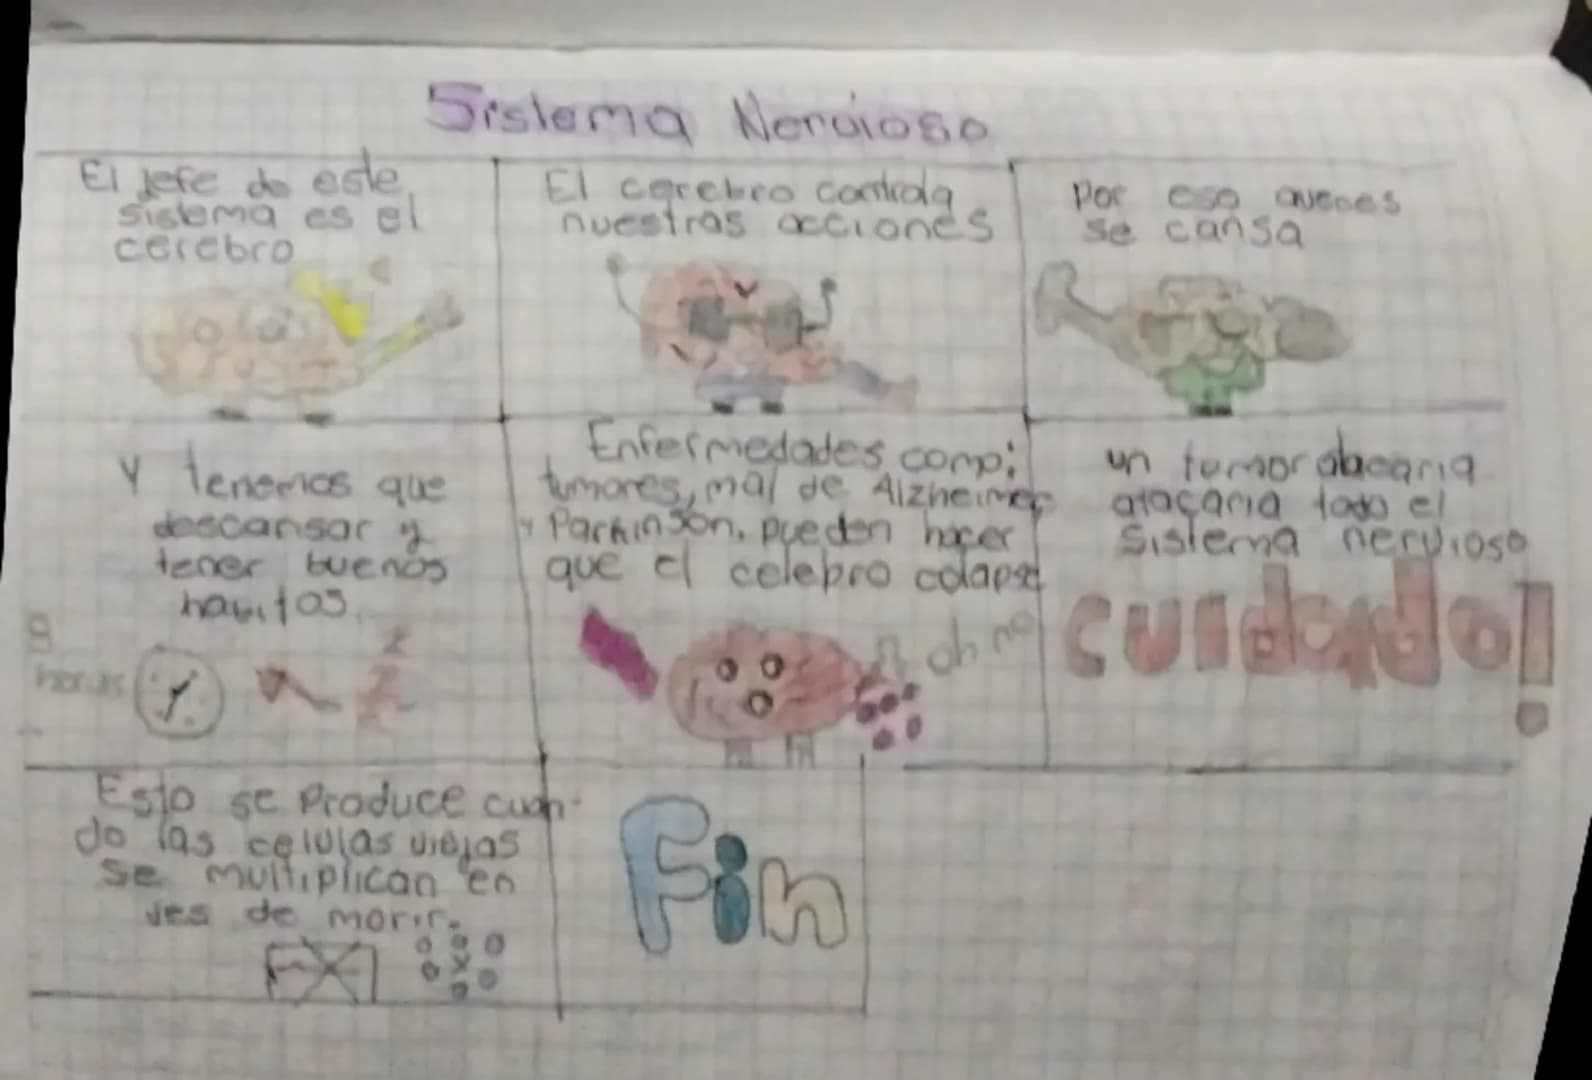 Sistema Nervioso
El jefe de este
sistema es el
cerebro
El cerebro controla
nuestras acciones
Por eso aveces
se cansa
Y tenemos que
descansar y
tener buenos
havitos
8
horas
Enfermedades como:
tumores, mal de Alzheimer
y Parkinson. pueden hacer
que el celebro colapse
oh no
un tumor
atacaria todo el
sistema nervioso
cuidado!
Esto se Produce cuan-
do las celulas viejas
se multiplican en
ves de morir.
Fin